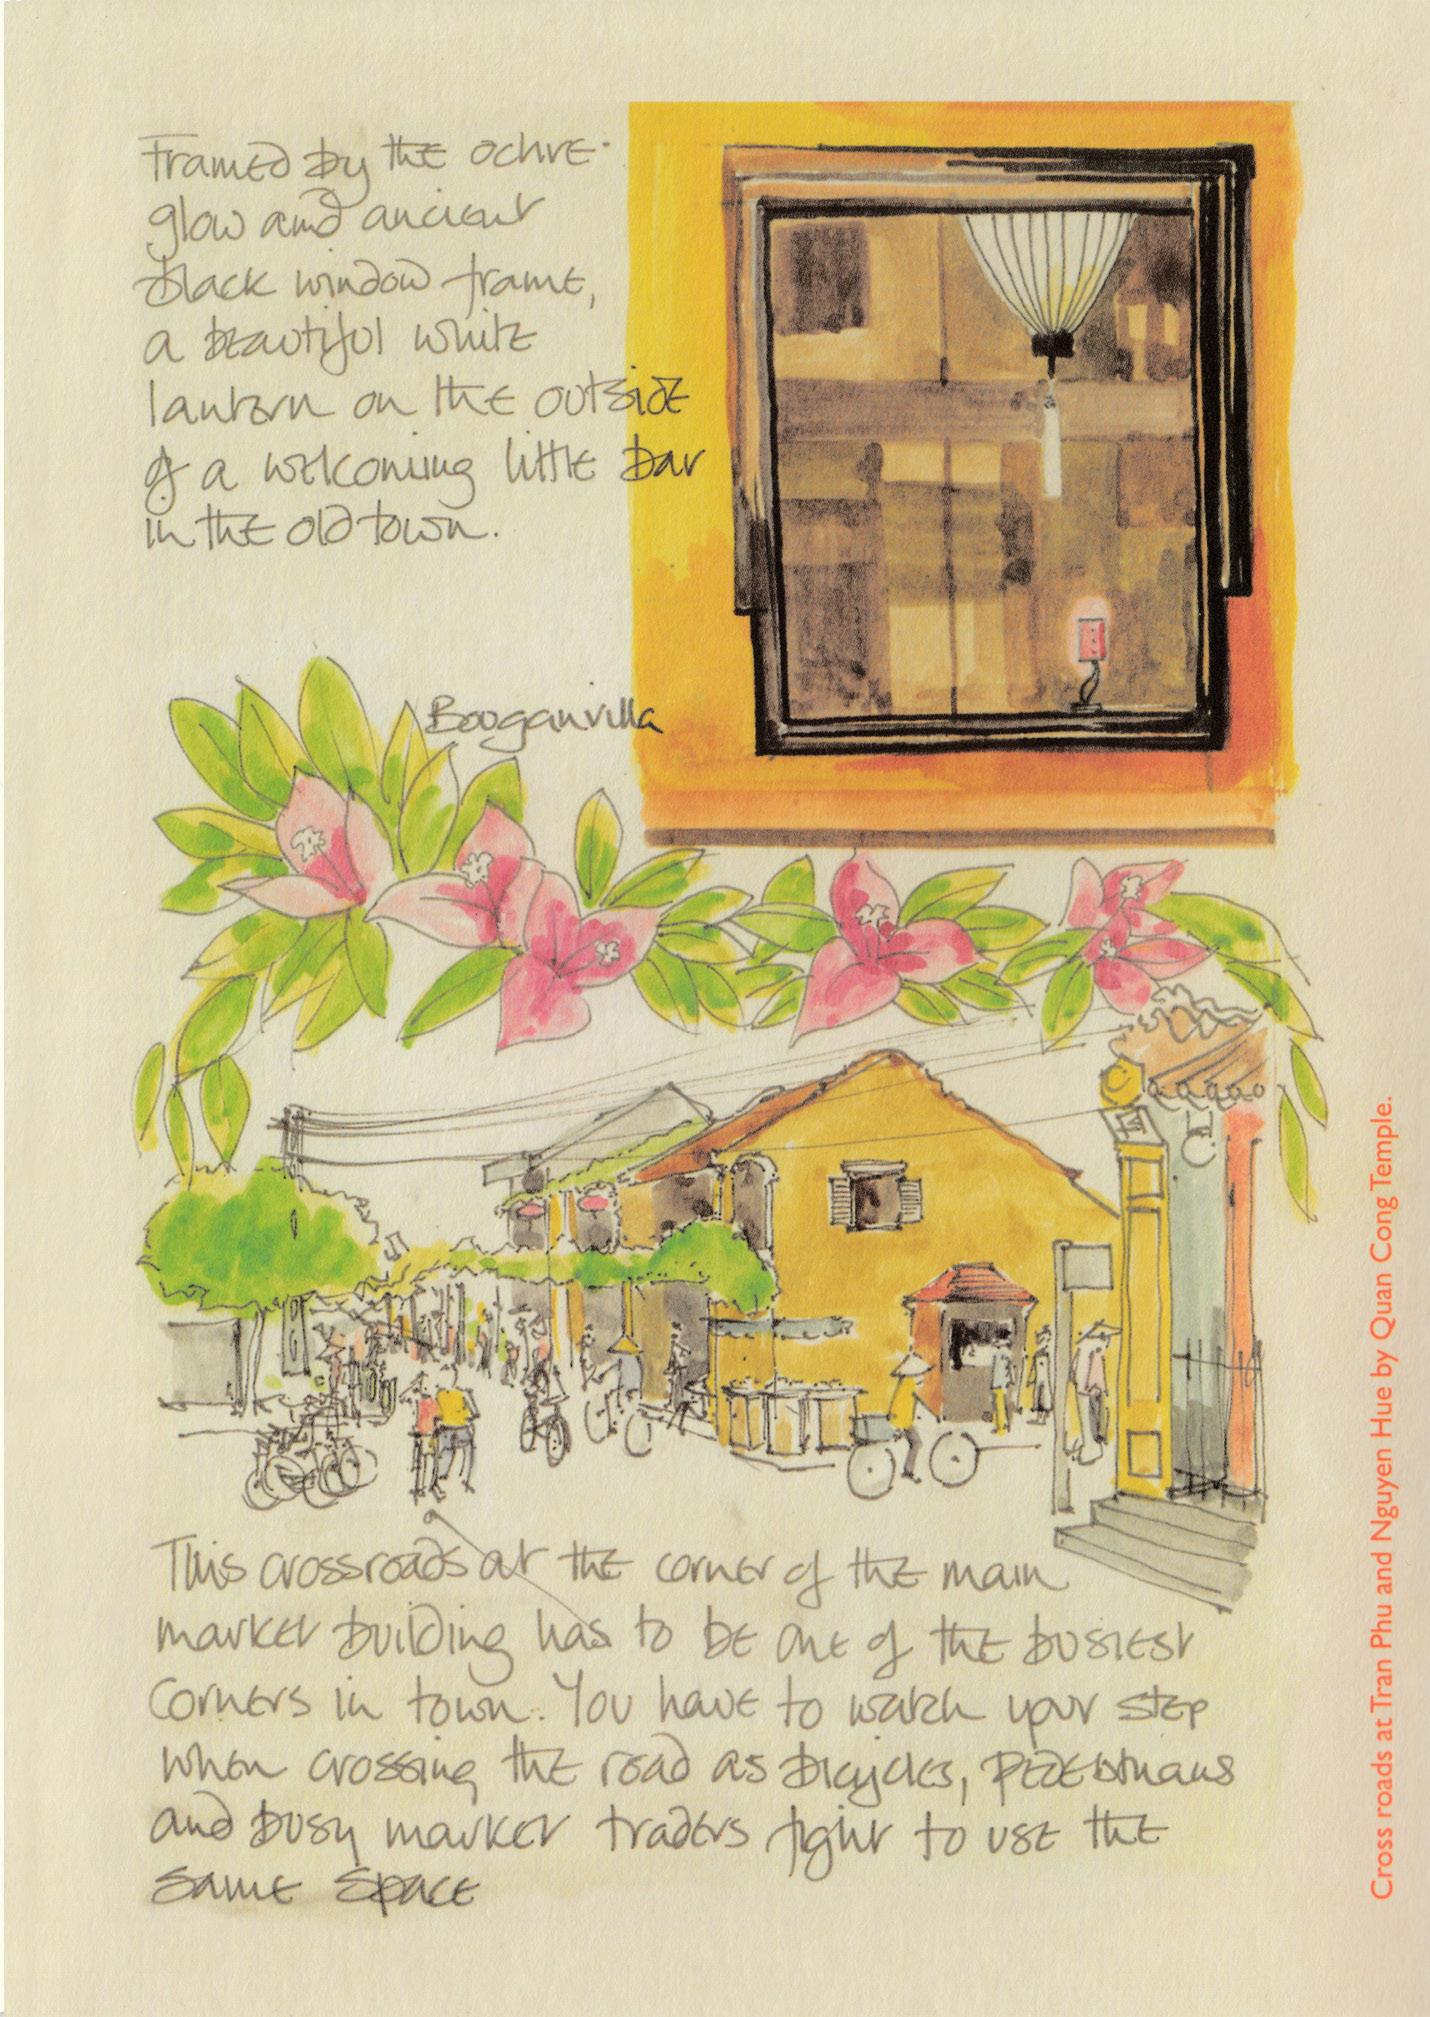 Framed by the ochre
glow and ancient
black window frame,
a beautiful white
lantern on the outside
of a welcoming little bar
in the old town.
Bouganvilla
This crossroads at the corner of the main
market building has to be one of the busiest
corners in town. You have to watch your step
when crossing the road as bicycles, pedestrians
and busy market traders fight to use the
same space
Cross roads at Tran Phu and Nguyen Hue by Quan Cong Temple.